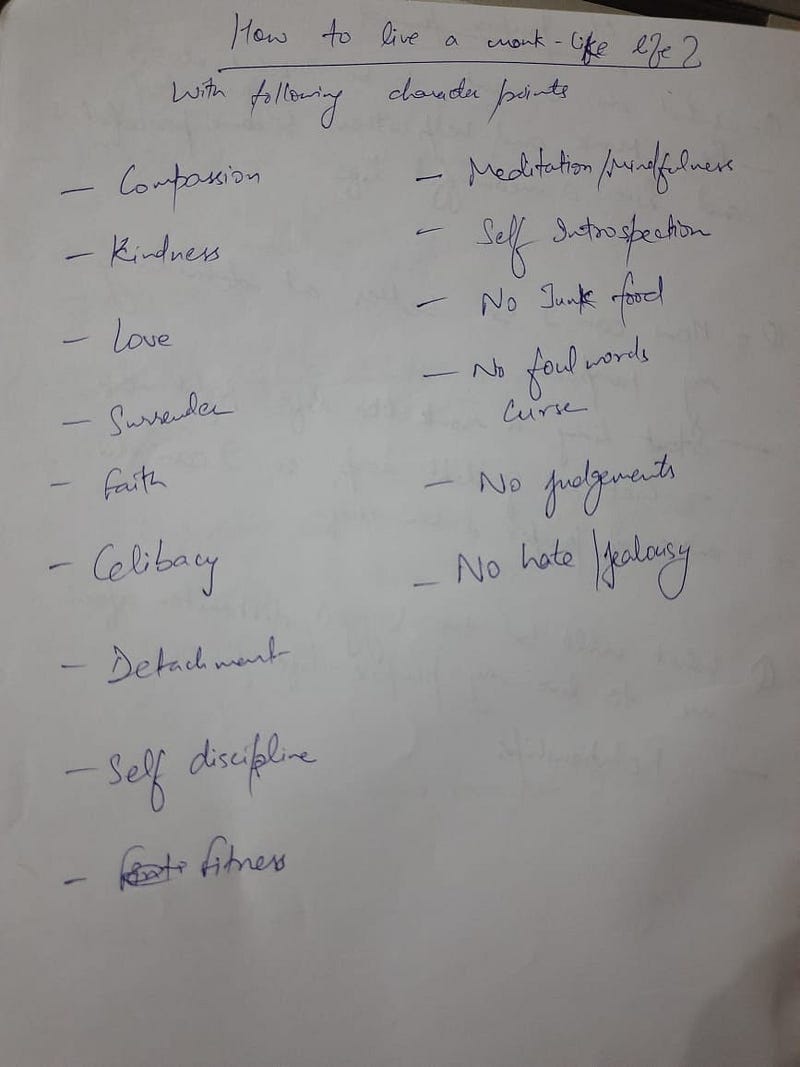 How to live a monk-like life?
With following character points
— Compassion
— Kindness
— Love
— Surrender
— Faith
— Celibacy
— Detachment
— Self discipline
— fitness
— Meditation/Mindfulness
— Self Introspection
— No Junk food
— No foul words
Curse
— No judgements
— No hate/jealousy